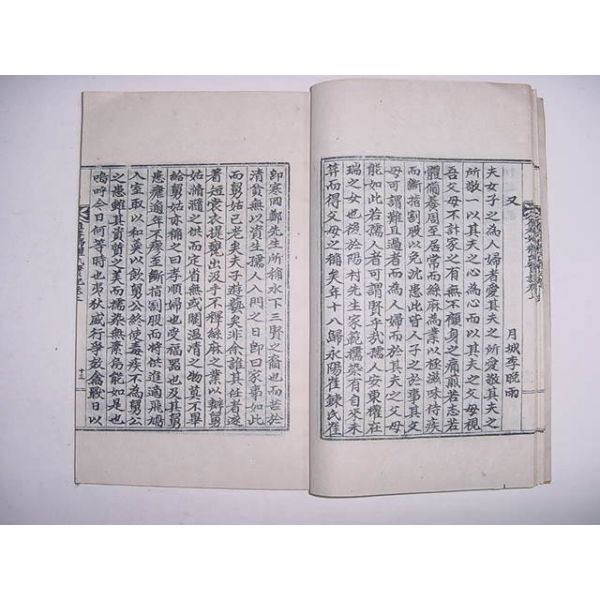 又
月城李晩雨
夫女子之為人婦者愛其夫之所愛敬其夫之
所敬一以其夫之心為心而以其夫之父母視
吾父母不計家之有無不顧身之痛煎若志若
體備養周至居常而絲麻為業以極滋味侍疾
而斷指割股以免沈患此皆人子之於事其父
母可謂難且過者而為人婦而於其夫之父母
能如此若孺人者可謂賢乎哉孺人安東權在
瑞之女也後於陽村先生家範擩染有自來未
笄而得父母之稱矣年十八歸永陽崔鍊氏崔
即寒岡鄭先生所稱水下三賢之裔也而苦於
清貧無以資生孺人入門之日卽曰家事如此
而舅姑已老矣夫子遊藝矣非余誰其任者遂
著短裳衣提甕出汲手不釋絲麻之業以辦舅
姑滫瀡之供而定省無或闕溫凊之物莫不畢
給舅姑亦稱之曰孝順婦也受福 也及其舅
患癰適年不瘳至斷指割股而時供進適飛鳩
入室取以和羹以飲舅公終使毒疾不為舅公
之患雖其資質之美而擩染無素烏能如是也
嗚呼今日何等時也夷狄盛行孝友 日以